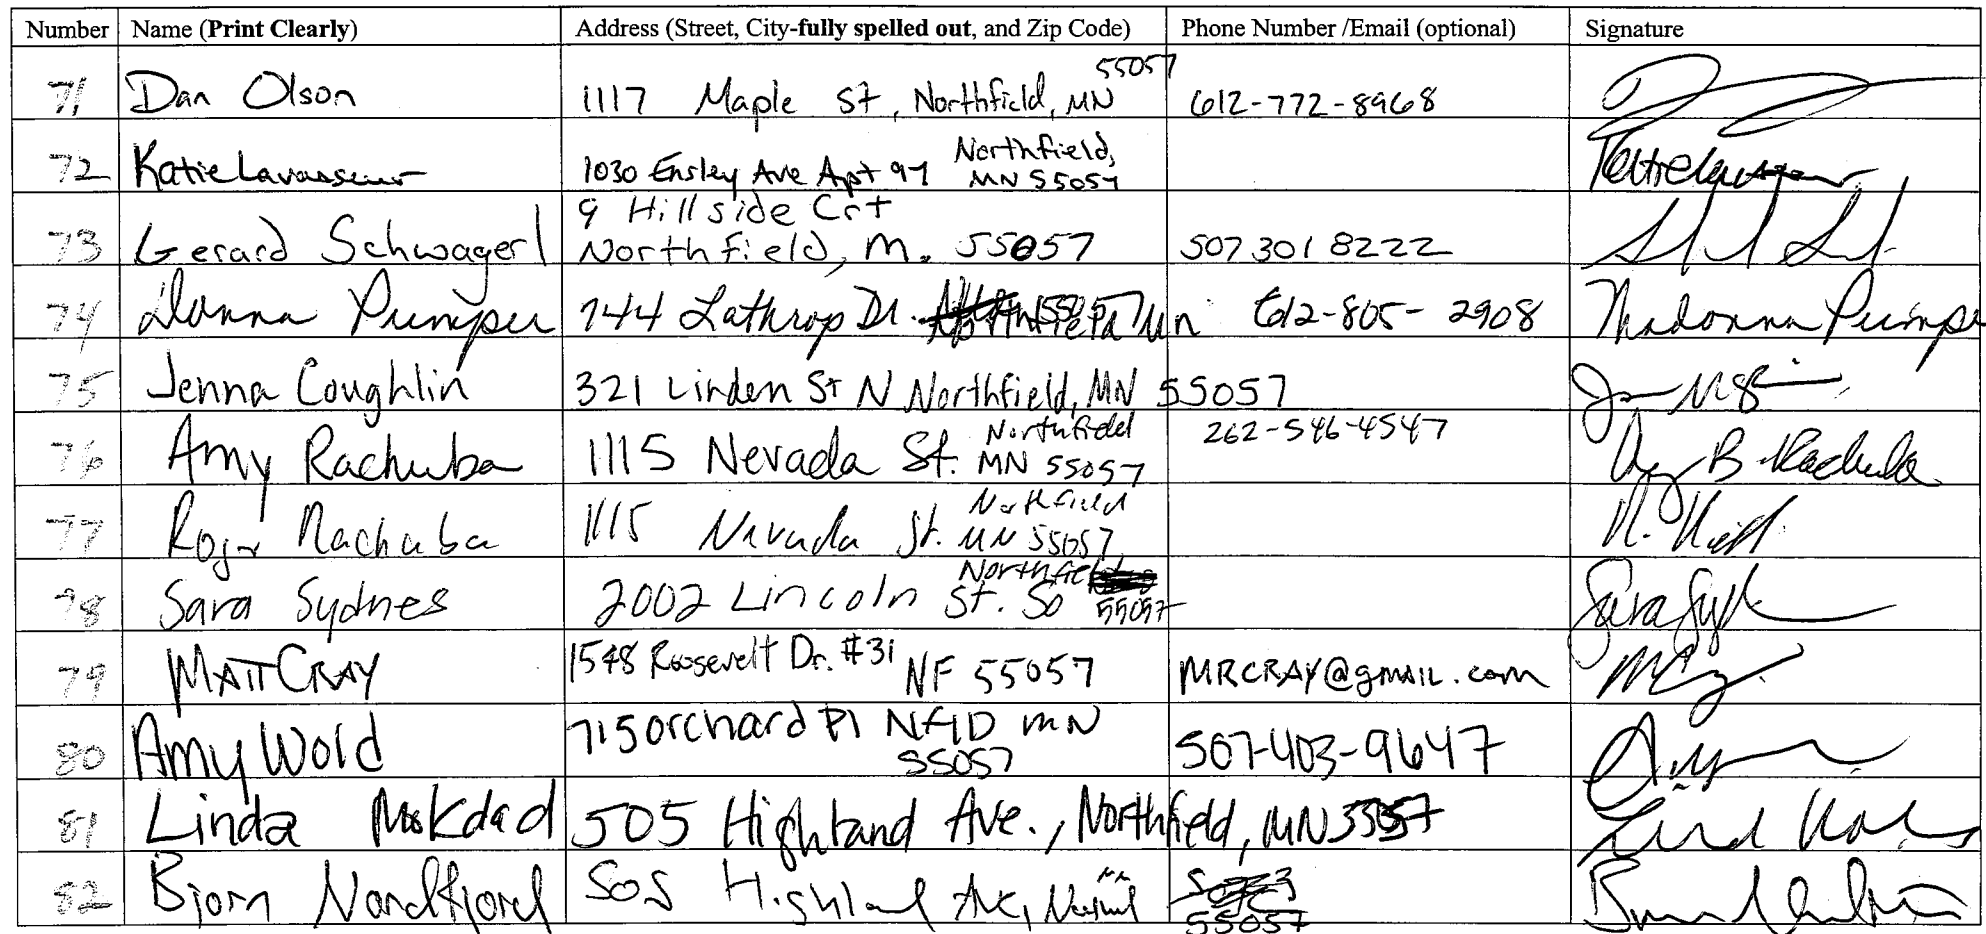 Number Name (Print Clearly) Address (Street, City-fully spelled out, and Zip Code) Phone Number /Email (optional) Signature
71 Dan Olson 1117 Maple St, Northfield, MN 55057 612-772-8968
72 Katie Lavasseur 1030 Ensley Ave Apt 97 Northfield, MN 55057
73 Gerard Schwagerl 9 Hillside Crt
Northfield, M. 55057 507 301 8222
74 Donna Pumper 744 Lathrop Dr. Northfield Mn 612-805-2908 Madonna Pumper
75 Jenna Coughlin 321 Linden St N Northfield, MN 55057
76 Amy Rachuba 1115 Nevada St. Northfield MN 55057 262-546-4547 Amy B Rachuba
77 Roger Rachuba 1115 Nevada St. Northfield MN 55057
78 Sara Sydnes 2002 Lincoln St. So Northfield 55057
79 MATT CRAY 1548 Roosevelt Dr. #31 NF 55057 MRCRAY@gmail.com
80 Amy Wold 715 orchard Pl NFlD MN
55057 507-403-9647
81 Linda Mokdad 505 Highland Ave., Northfield, MN 55057
82 Bjorn Nordfjord 505 Highland Ave, MN
55057